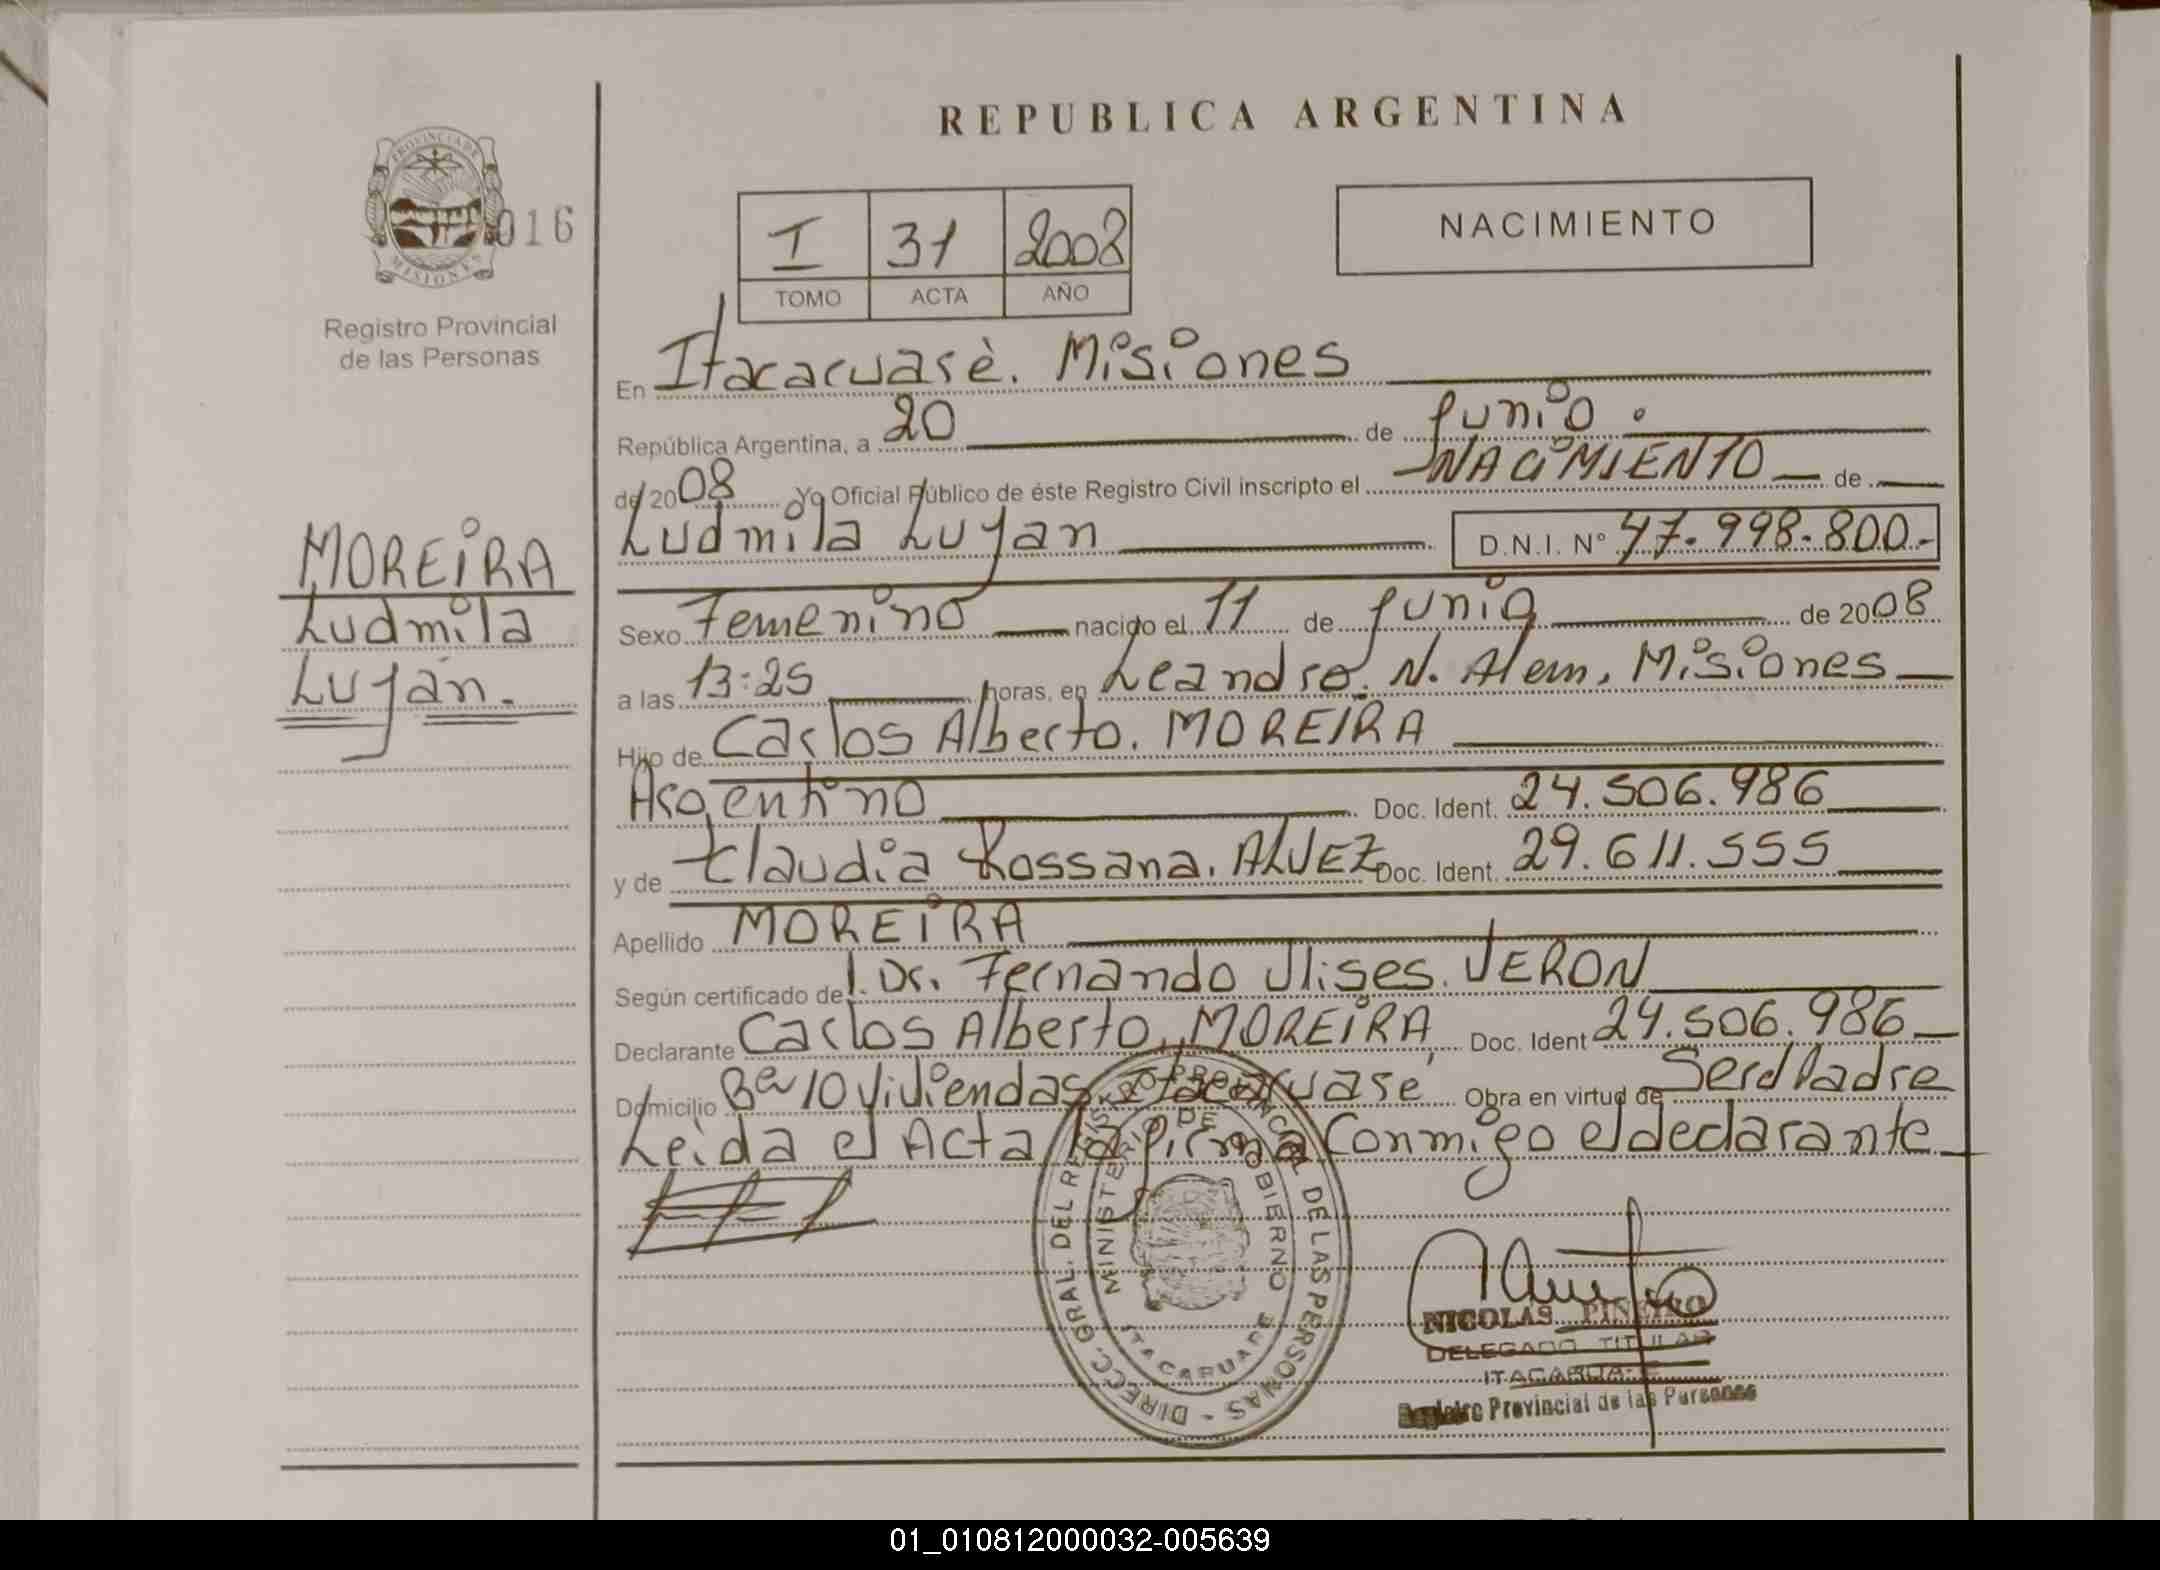 REPUBLICA ARGENTINA
PROVINCIA DE
MISIONES
016
Registro Provincial
de las Personas
I 31 2008
TOMO ACTA AÑO
NACIMIENTO
En Itacaruarè. Misiones
República Argentina, a 20 de Junio.
de 2008 Yo Oficial Público de éste Registro Civil inscripto el NACIMIENTO de
Ludmila Lujan D.N.I. Nº 47.998.800.-
MOREIRA
Ludmila
Luján.
Sexo Femenino nacido el 11 de Junio de 2008
a las 13:25 horas, en Leandro. N. Alem, Misiones
Hijo de Carlos Alberto. MOREIRA
Argentino Doc. Ident. 24.506.986
y de Claudia Rossana. ALVEZ Doc. Ident. 29.611.555
Apellido MOREIRA
Según certificado de Dr. Fernando Ulises. VERON
Declarante Carlos Alberto, MOREIRA, Doc. Ident 24.506.986
Domicilio Bº 10 Viviendas Itacaruarè Obra en virtud de Ser el Padre
Leida el Acta la firma Conmigo el declarante
DIRECC. GRAL. DEL REGISTRO PROVINCIAL DE LAS PERSONAS -
MINISTERIO DE GOBIERNO
ITACARUARE
NICOLAS PINEIRO
DELEGADO TITULAR
ITACARUARE
Registro Provincial de las Personas
01_010812000032-005639